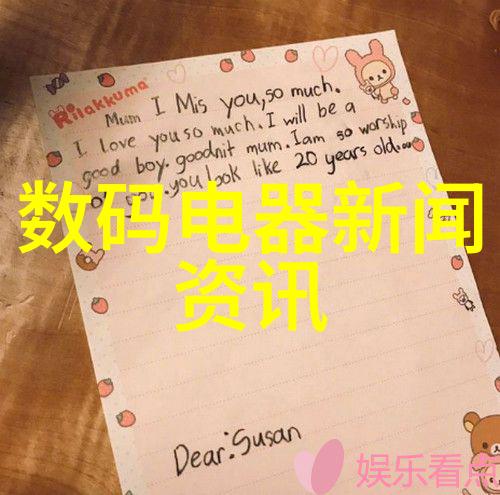 Rilakkuma
Mum I Mis you, so much.
I love you so much. I will be a
good boy. goodnit mum. I am so worship
you. you look like 20 years old.
数码电器新闻
资讯
Dear: Susan
娱乐看点